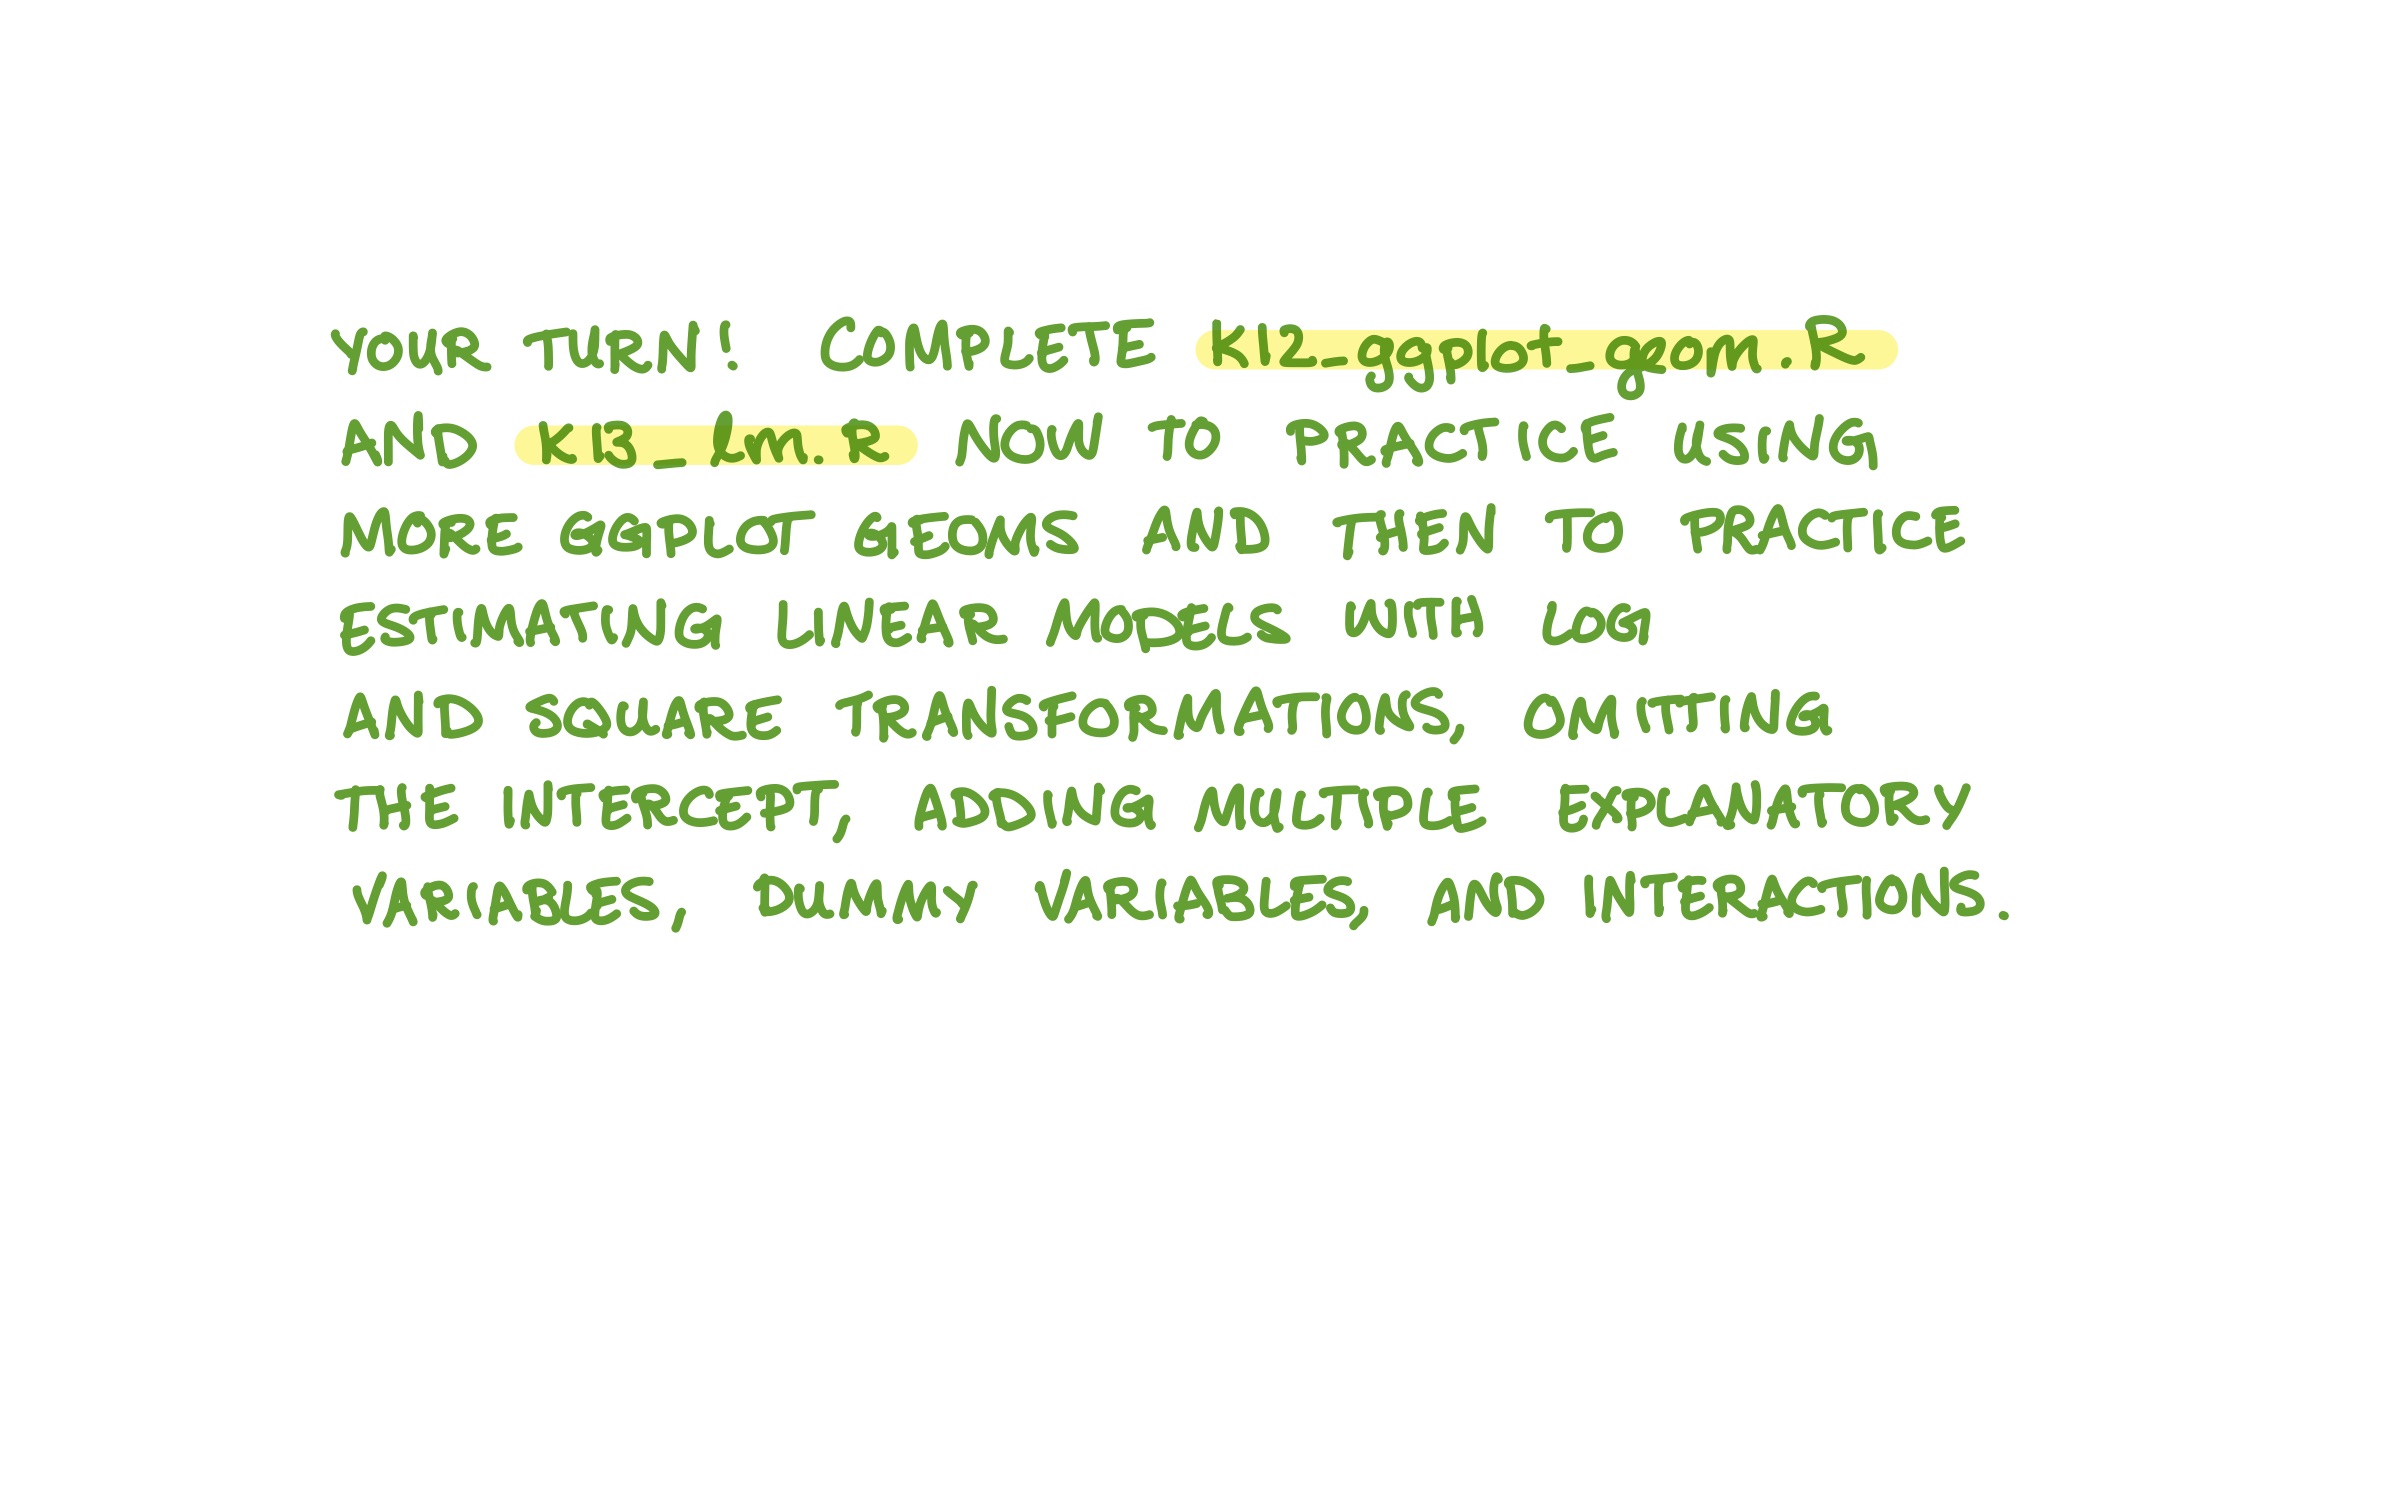 YOUR TURN! COMPLETE K12_ggplot_geom.R
AND K13_lm.R NOW TO PRACTICE USING
MORE GGPLOT GEOMS AND THEN TO PRACTICE
ESTIMATING LINEAR MODELS WITH LOG
AND SQUARE TRANSFORMATIONS, OMITTING
THE INTERCEPT, ADDING MULTIPLE EXPLANATORY
VARIABLES, DUMMY VARIABLES, AND INTERACTIONS.